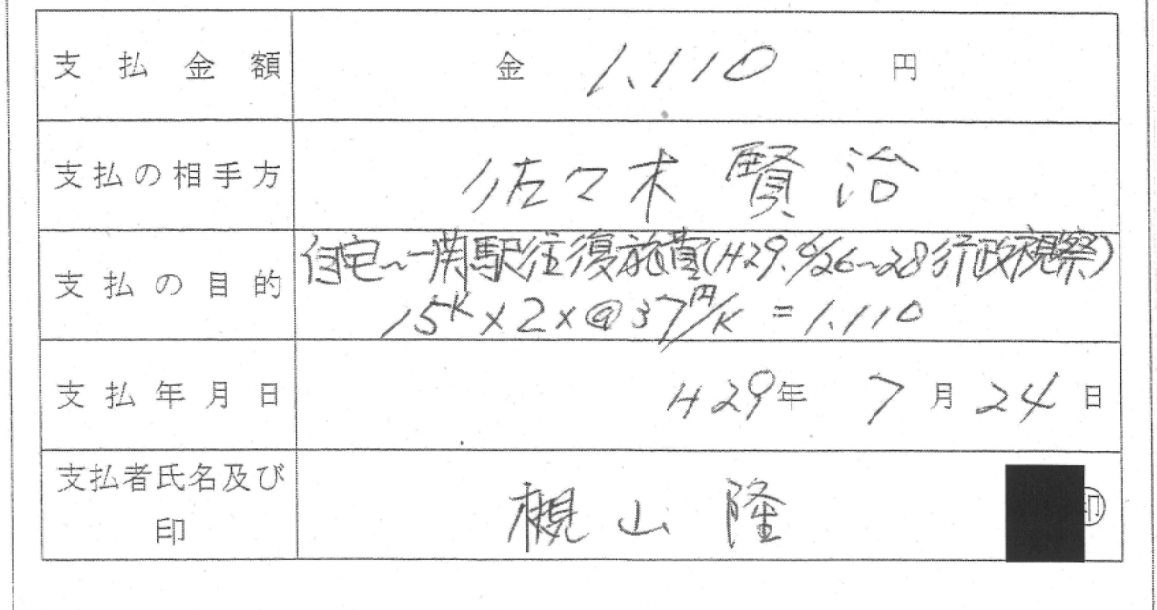 支払金額 金 1.110 円
支払の相手方 佐々木 賢治
支払の目的 自宅~一関駅往復旅費(H29.9/26~28行政視察)
15K×2×@37円/K=1.110
支払年月日 H29年 7月24日
支払者氏名及び
印
槻山 隆
印